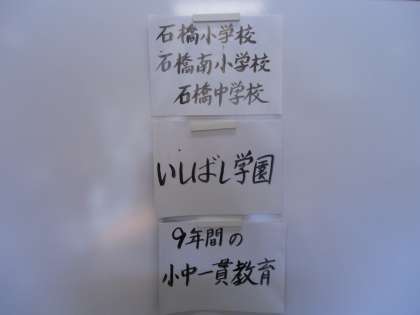 石橋小学校
石橋南小学校
石橋中学校
いしばし学園
9年間の
小中一貫教育